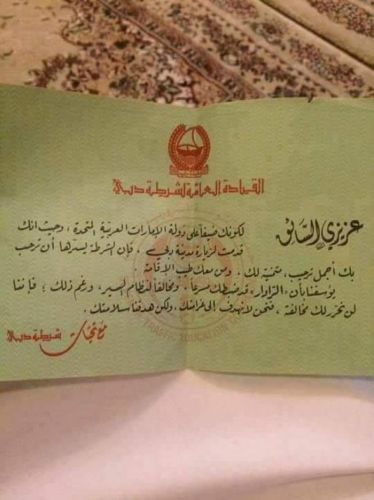 القيادة العامة لشرطة دبي
عزيزي السائق
لكونك ضيفاً على دولة الامارات العربية المتحدة، وحيث انك
قدمت لزيارة مدينة دبي، فإن الشرطة يسرها أن ترحب
بك أجمل ترحيب، متمنية لك ومن معك طيب الإقامة
يؤسفنا بأن "الرادار" قد ضبطك مسرعاً، ومخالفاً لنظام السير، ورغم ذلك؛ فإننا
لن نحرر لك مخالفة، فنحن لا نهدف إلى غرامتك. ولكن هدفنا سلامتك.
مع تحيات شرطة دبي